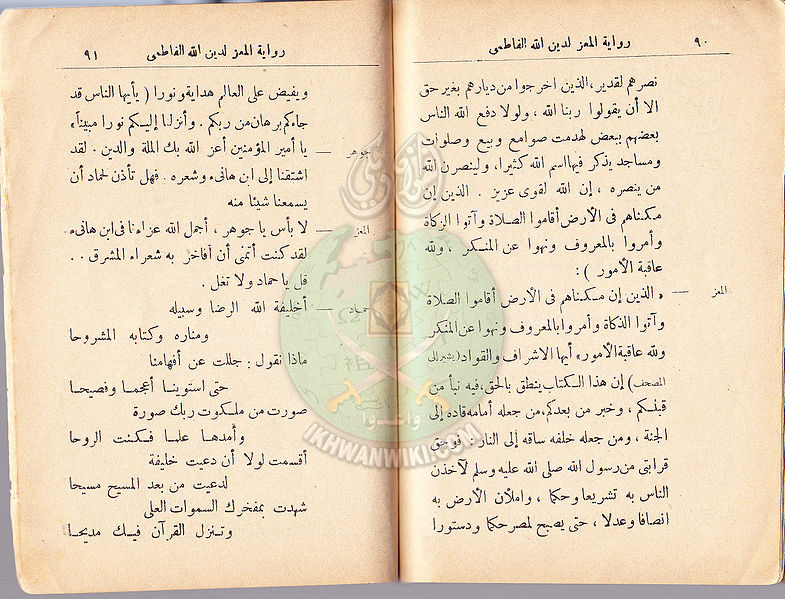 ٩٠ رواية المعز لدين الله الفاطمى
نصرهم لقدير، الذين اخرجوا من ديارهم بغير حق
الا أن يقولوا ربنا الله ، ولولا دفع الله الناس
بعضهم ببعض لهدمت صوامع وبيع وصلوات
ومساجد يذكر فيها اسم الله كثيرا، ولينصرن الله
من ينصره ، إن الله لقوى عزيز . الذين إن
مكناهم فى الأرض أقاموا الصلاة وآتوا الزكاة
وأمروا بالمعروف ونهوا عن المنكر ، ولله
عاقبة الأمور ) :
المعز — « الذين إن مكناهم فى الأرض أقاموا الصلاة
وآتوا الذكاة وأمروا بالمعروف ونهوا عن المنكر
ولله عاقبة الأمور» أيها الاشراف والقواد (يشير إلى
المصحف) إن هذا الكتاب ينطق بالحق، فيه نبأ من
قبلكم ، وخبر من بعدكم، من جعله أمامه قاده إلى
الجنة ، ومن جعله خلفه ساقه إلى النار : فوحق
قرابتى من رسول الله صلى الله عليه وسلم لآخذن
الناس به تشريعا وحكما ، واملأن الأرض به
انصافا وعدلا ، حتى يصبح لمصر حكما ودستورا
رواية المعز لدين الله الفاطمى ٩١
ويفيض على العالم هداية ونورا ( يأيها الناس قد
جاءكم برهان من ربكم . وأنزلنا إليكم نورا مبيناً»
جوهر — يا أمير المؤمنين أعز الله بك الملة والدين . لقد
اشتقنا إلى ابن هانىء وشعره . فهل تأذن لحماد أن
يسمعنا شيئا منه
المعز — لا بأس يا جوهر ، أجمل الله عزاءنا فى ابن هانىء
لقد كنت أتمنى أن أفاخر به شعراء المشرق . .
قل يا حماد ولا تغل .
حماد — أخليفة الله الرضا وسبيله
ومناره وكتابه المشروحا
ماذا نقول : جللت عن أفهامنا
حتى استوينا أعجمـا وفصيحـا
صورت من ملكوت ربك صورة
وأمدهـا علمـا فـكـنت الروحا
أقسمت لولا أن دعيت خليفة
لدعيت من بعد المسيح مسيحا
شهدت بمفخرك السموات العلى
وتنزل القرآن فيـك مديحـا
واعدوا
IKHWANWIKI.COM